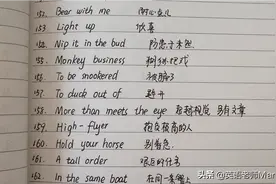 152. Bear with me 耐心点儿
153 Light up 欢喜
154. Nip it in the bud 防患于未然
155. Monkey business 胡作非为
156 To be snookered 被骗了
157. To duck out of 逃开
158. More than meets the eye 另有文章
159. High-flyer 抱负极高的人
160. Hold your horse 别着急
161. A tall order 艰巨的任务
162. In the same boat 在同一条船上
头条 @英语老师Mar